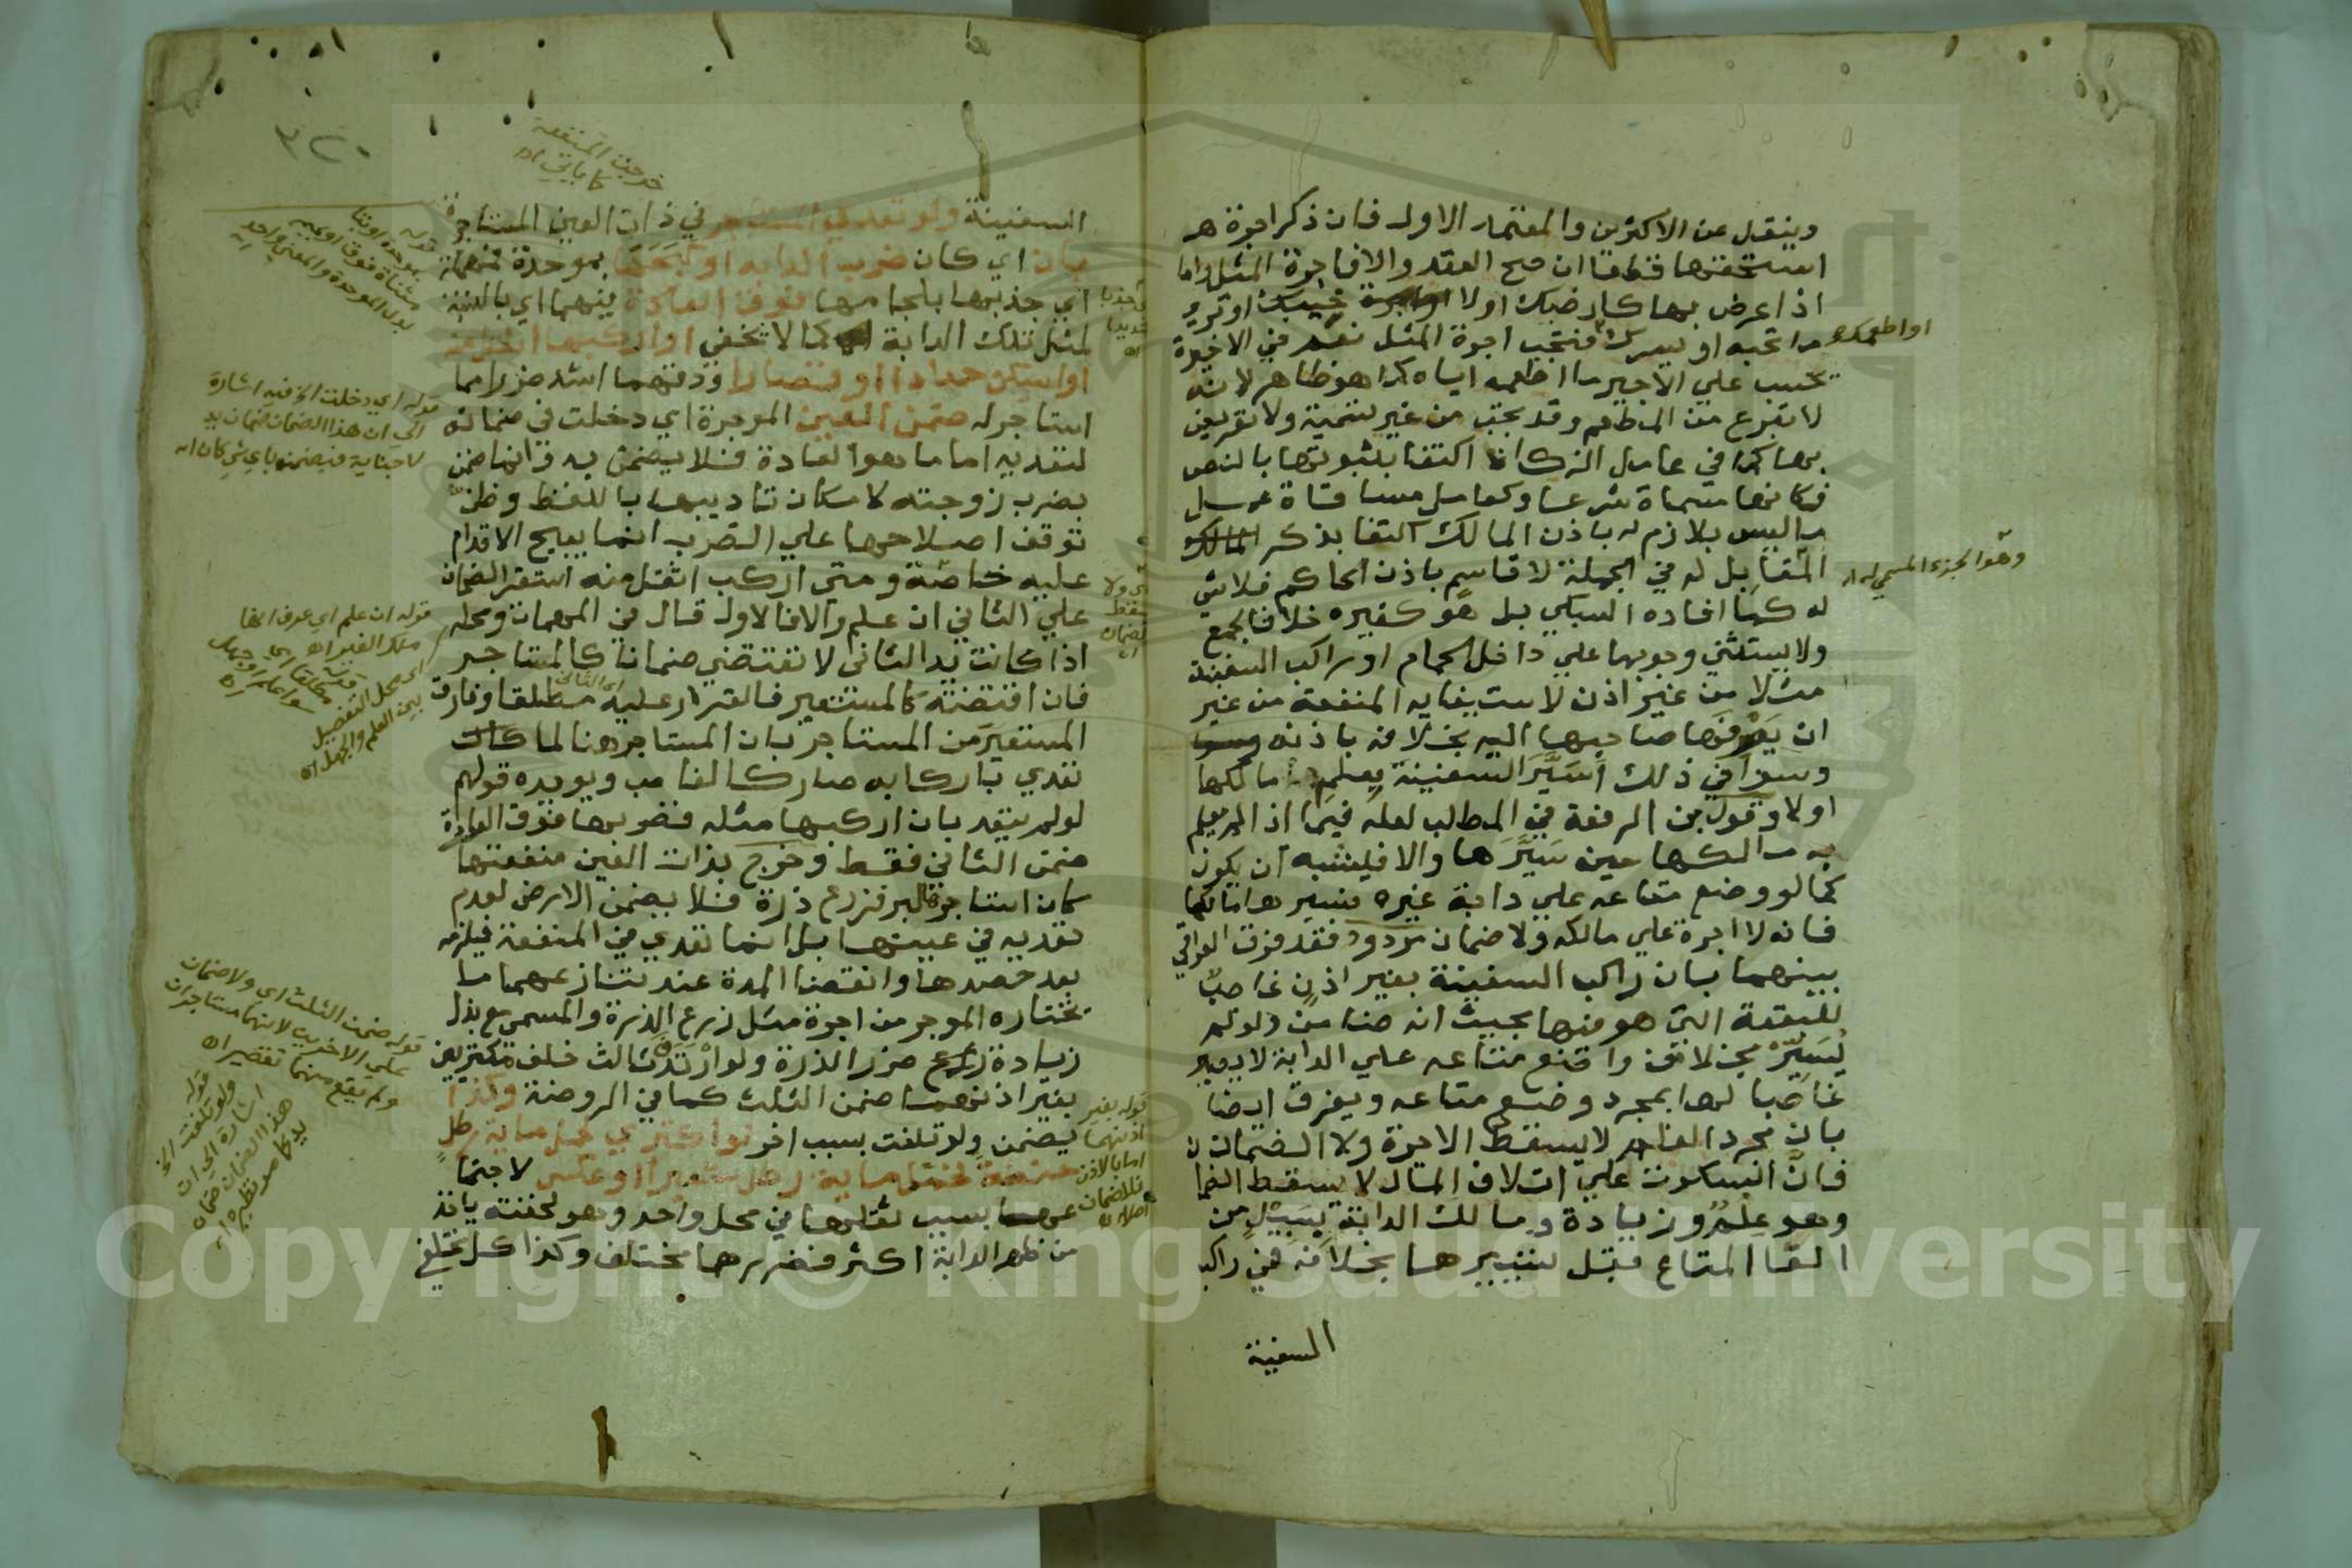 وينقل عن الاكثرين والمعتمد الاول فان ذكر اجرة هـ
استحقها قطعا ان صح العقد والا فاجرة المثل واما
اذا عرض بها كارضيك اولا اخيبك او ترى
ما تحبه او يسرك فتجب اجرة المثل نعم في الاخيرة
او اطعمك
تحسب على الاجير ما اطعمه اياه كما هو ظاهر لانه
لا تبرع من المطعم وقد تجب من غير تسمية ولا تعريض
بها كما في عامل الزكاة اكتفا بثبوتها بالنص
فكانها مسماة شرعا وكعامل مساقاة عمل
ما ليس بلازم له باذن المالك اكتفا بذكر
المقابل له في الجملة لا قاسم باذن الحاكم فلا شي
وهو الجزء المسمى له اه
له كما افاده السبكي بل هو كغيره خلافا لجمع
ولا يستثنى وجوبها على داخل الحمام او راكب السفينة
مثلا من غير اذن لاستيفايه المنفعة من غير
ان يصرفها صاحبها اليه بخلافه باذنه
وسوا في ذلك اسير السفينة بعلم مالكها
او لا وقول ابن الرفعة في المطلب لعله فيما اذا لم يعلم
به مالكها حين سيرها والا فيشبه ان يكون
كما لو وضع متاعه على دابة غيره فسيرها مالكها
فانه لا اجرة على مالكه ولا ضمان مردود فقد فرق العراقي
بينهما بان راكب السفينة بغير اذن غاصب
للبقعة التي هو فيها بحيث انه ضامن ولو لم
يسير بخلاف واضع متاعه على الدابة لا يصير
غاصبا لها بمجرد وضع متاعه ويفرق ايضا
بان مجرد العلم لا يسقط الاجرة ولا الضمان
فان السكوت على اتلاف المال لا يسقط الضما
وهو علم وزيادة ومالك الدابة بسبيل من
القا المتاع قبل تسييرها بخلافه في راكب
السفينة
خرجت المنفعة
كما ياتي اه
السفينة ولو تعدى المستاجر في ذات العين المستاجرة
بان اي كان ضرب الدابة او كبحها بموحدة فمهملة
اي جذبها بلجامها فوق العادة فيهما اي بالنسبة
لمثل تلك الدابة كما لا يخفى او اركبها اثقل منه
او اسكن حدادا او قصارا ودقهما اشد ضررا مما
استاجر له ضمن العين الموجرة اي دخلت في ضمانه
لتعديه اما ما هو العادة فلا يضمن به وانما ضمن
بضرب زوجته لامكان تاديبها باللفظ وظن
توقف اصلاحها على الضرب انما يبيح الاقدام
عليه خاصة ومتى اركب اثقل منه استقر الضمان
على الثاني ان علم والا فالاول قال في المهمات ومحله
اذا كانت يد الثاني لا تقتضي ضمانا كالمستاجر
فان اقتضته كالمستعير فالقرار عليه مطلقا وفارق
اي الثاني
المستعير من المستاجر بان المستاجر هنا لما كان
تعدى باركابه صار كالغاصب ويويده قولهم
لو لم يتعد بان اركبها مثله فضربها فوق العادة
ضمن الثاني فقط وخرج بذات العين منفعتها
كان استاجر لبر فزرع ذرة فلا يضمن الارض لعدم
تعديه في عينها بل انما تعدى في المنفعة فيلزمه
بعد حصدها وانقضا المدة عند تنازعهما ما
يختاره الموجر من اجرة مثل زرع الذرة والمسمى مع بذل
زيادة ضرر الذرة ولو ارتدف ثالث خلف مكتريين
بغير اذنهما ضمن الثلث كما في الروضة وكذا
يضمن ولو تلفت بسبب اخر لو اكترى لحمل ماية رطل
حنطة فحمل ماية رطل شعيرا او عكس لاجتما
عها بسبب ثقلها في محل واحد وهو لخفته ياخذ
من ظهر الدابة اكثر فضررهما مختلف وكذا كل مختلفي
قوله اي دخلت الخ فيه اشارة
الى ان هذا الضمان ضمان يد
لا جناية فيضمنه باي شي كان اه
قوله ان علم اي عرف انها
ملك الغير اه
اي محل التفصيل
بين العلم والجهل اه
قوله ضمن الثلث اي ولا ضمان
على الاخرين لانهما مستاجران
ولم يقع منهما تقصير اه
قوله
ولو تلفت الخ
اشارة الى ان
هذا الضمان ضمان
يد كما مر نظيره اه
قوله بغير
اذنهما
اما بالاذن
فلا ضمان